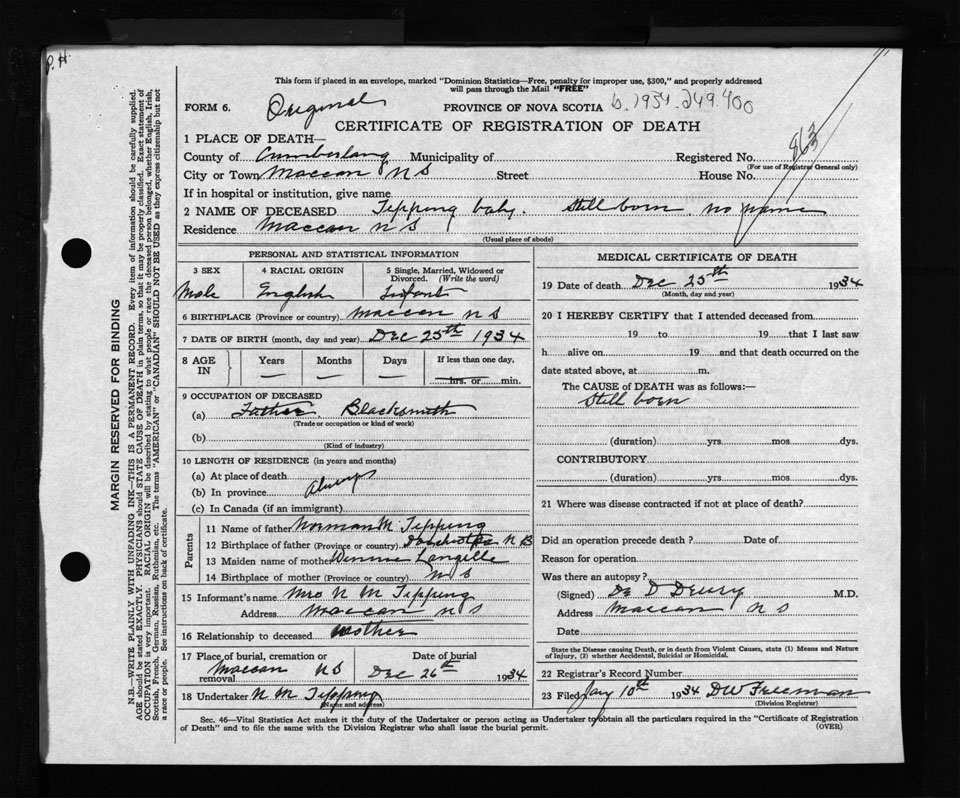 P. H.
This form if placed in an envelope, marked "Dominion Statistics—Free, penalty for improper use, $300," and properly addressed
will pass through the Mail "FREE"
FORM 6. Original PROVINCE OF NOVA SCOTIA b. 1934-249.400
CERTIFICATE OF REGISTRATION OF DEATH
1 PLACE OF DEATH—
County of Cumberland Municipality of Registered No. 863
(For use of Registrar General only)
City or Town Maccan N S Street House No.
If in hospital or institution, give name
2 NAME OF DECEASED Tepping baby. Still born no name
Residence Maccan N S
(Usual place of abode)
PERSONAL AND STATISTICAL INFORMATION
3 SEX 4 RACIAL ORIGIN 5 Single, Married, Widowed or Divorced. (Write the word)
Male English Infant
6 BIRTHPLACE (Province or country) Maccan N S
7 DATE OF BIRTH (month, day and year) Dec 25th 1934
8 AGE IN Years Months Days If less than one day,
— — — hrs. or min.
9 OCCUPATION OF DECEASED
(a) Father Blacksmith
(Trade or occupation or kind of work)
(b)
(Kind of industry)
10 LENGTH OF RESIDENCE (in years and months)
(a) At place of death
(b) In province Always
(c) In Canada (if an immigrant)
Parents
11 Name of father Norman M. Tepping
12 Birthplace of father (Province or country) N B
13 Maiden name of mother Langille
14 Birthplace of mother (Province or country) N S
15 Informant's name Mrs N M Tepping
Address Maccan N S
16 Relationship to deceased Mother
17 Place of burial, cremation or removal Maccan N S Date of burial Dec 26th 1934
18 Undertaker N. M. Tepping
(Name and address)
MEDICAL CERTIFICATE OF DEATH
19 Date of death Dec 25th 1934
(Month, day and year)
20 I HEREBY CERTIFY that I attended deceased from
19 to 19 that I last saw
h alive on 19 and that death occurred on the
date stated above, at m.
The CAUSE of DEATH was as follows:—
Still born
(duration) yrs. mos. dys.
CONTRIBUTORY
(duration) yrs. mos. dys.
21 Where was disease contracted if not at place of death?
Did an operation precede death ? Date of
Reason for operation
Was there an autopsy?
(Signed) Dr D Drury M.D.
Address Maccan N S
Date
State the Disease causing Death, or in death from Violent Causes, state (1) Means and Nature
of Injury, (2) whether Accidental, Suicidal or Homicidal.
22 Registrar's Record Number
23 Filed Jany 10th 1934 D W Freeman
(Division Registrar)
Sec. 46—Vital Statistics Act makes it the duty of the Undertaker or person acting as Undertaker to obtain all the particulars required in the "Certificate of Registration
of Death" and to file the same with the Division Registrar who shall issue the burial permit. (OVER)
MARGIN RESERVED FOR BINDING
N.B.—WRITE PLAINLY WITH UNFADING INK—THIS IS A PERMANENT RECORD. Every item of information should be carefully supplied.
AGE should be stated EXACTLY. PHYSICIANS should STATE CAUSE OF DEATH in plain terms, so that it may be properly classified. Exact statement of
OCCUPATION is very important. RACIAL ORIGIN will be described by stating to what people or race the deceased person belonged, whether English, Irish,
Scottish, French, German, Russian, Ruthenian, etc. The terms "AMERICAN" or "CANADIAN" SHOULD NOT BE USED as they express citizenship but not
a race or people. See instructions on back of certificate.